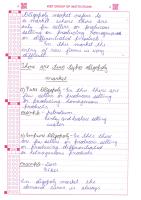 Oligopoly market refers to
a market where there are
only few sellers or producers
selling or producing homogenous
or differentiated products.
In this market the
entry of new firms is very
difficult.
There are two types oligopoly
market
(i) Pure Oligopoly - In this there
are few sellers or producers selling or
producing homogenous
products.
Example - petroleum
selling
water
(ii) Impure Oligopoly - In this there
are few sellers or producers selling
or producing differentiated
or heterogenous products.
Example - Cars
Bikes
In oligopoly market the
demand curve is always